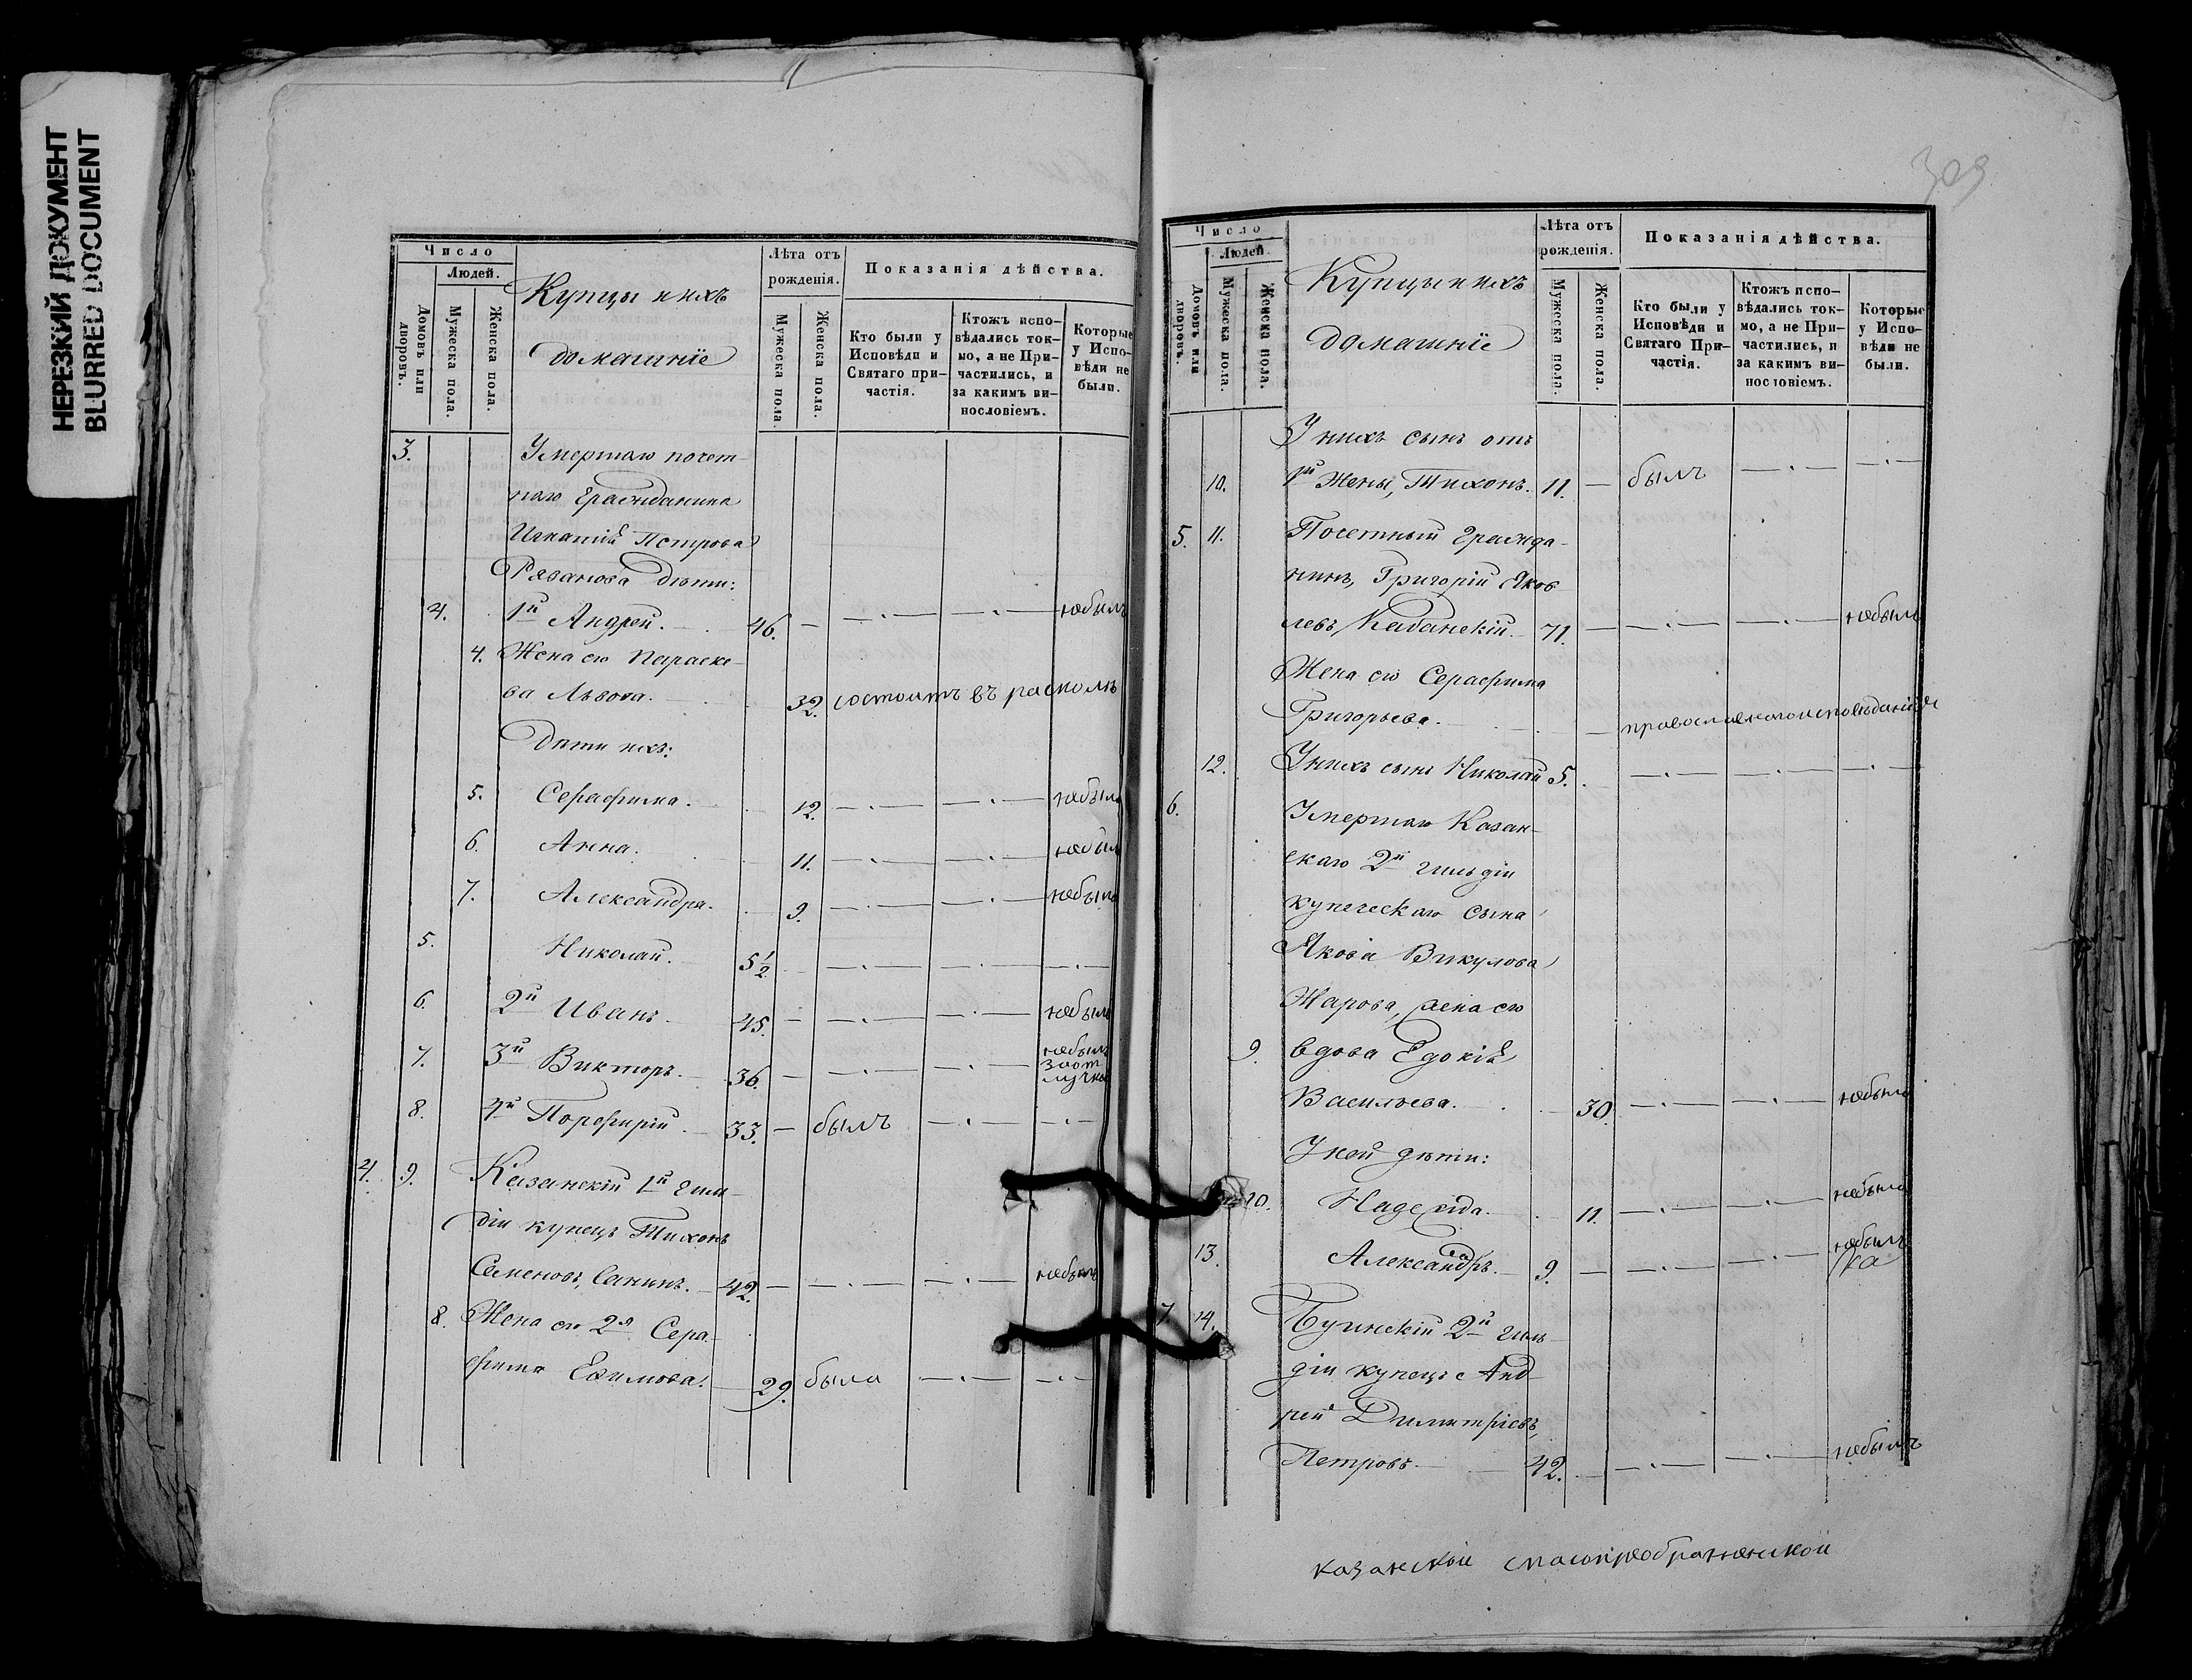 НЕРЕЗКИЙ ДОКУМЕНТ
BLURRED DOCUMENT
Число
Людей.
Домовъ или дворовъ.
Мужеска пола.
Женска пола.
Купцы и ихъ
домашніе
Лѣта отъ рожденія.
Мужеска пола
Женска пола.
Показанія дѣйства.
Кто были у Исповѣди и Святаго при-частія.
Ктожъ испо-вѣдались ток-мо, а не При-частились, и за какимъ ви-нословіемъ.
Которые у Испо-вѣди не были.
3. Умершаго почет-
наго Гражданина
Игнатія Петрова
Рязанова дѣти:
4. 1й Андрей. 46. — — · — — · — небылъ
4. Жена его Параске-
ва Львова. 32. состоитъ въ расколѣ
Дѣти ихъ:
5. Серафима. 12. — · — — · — небыла
6. Анна. 11. — · — — · — небыла
7. Александра. 9. — · — — · — небыла
5. Николай. 5 1/2 — · — — · — — · —
6. 2й Иванъ. 45. — — · — — · — небылъ
7. 3й Викторъ. 36. — — · — — · — небылъ
за от
лучкой
8. 4й Порфирій. 33. — былъ — · — — · —
4. 9. Казанскій 1й гиль-
діи купецъ Тихонъ
Семеновъ, Санинъ. 42. — — · — — · — небылъ
8. Жена его 2я Сера-
фима Ефимова. 29. была — · — — · —
309
Число
Людей
Домовъ или дворовъ.
Мужеска пола.
Женска пола.
Купцы и ихъ
домашніе
Лѣта отъ рожденія.
Мужеска пола.
Женска пола.
Показанія дѣйства.
Кто были у Исповѣди и Святаго При-частія.
Ктожъ испо-вѣдались ток-мо, а не При-частились, и за какимъ ви-нословіемъ.
Которые у Испо-вѣди не были.
У нихъ сынъ отъ
10. 1й Жены, Тихонъ. 11. — былъ — · — — · —
5. 11. Почетный гражда-
нинъ, Григорій Яков
левъ Кабанскій. 71. — — · — — · — небылъ
Жена его Серафима
Григорьева. — православнаго исповѣданія
12. У нихъ сынъ Николай 5. — · — — · — — · —
6. Умершаго Казан-
скаго 2й гильдіи
купеческаго сына
Якова Викулова
Жарова, жена его
9. вдова Евдокія
Васильева. 30. — · — — · — небыла
У ней дѣти:
10. Надежда. 11. — · — — · — небыла
13. Александръ. 9. — — · — — · — небылъ
7. 14. Буинскій 2й гиль-
діи купецъ Анд-
рей Димитріевъ,
Петровъ. 42. — — · — — · — небылъ
казанской спасопреображенской